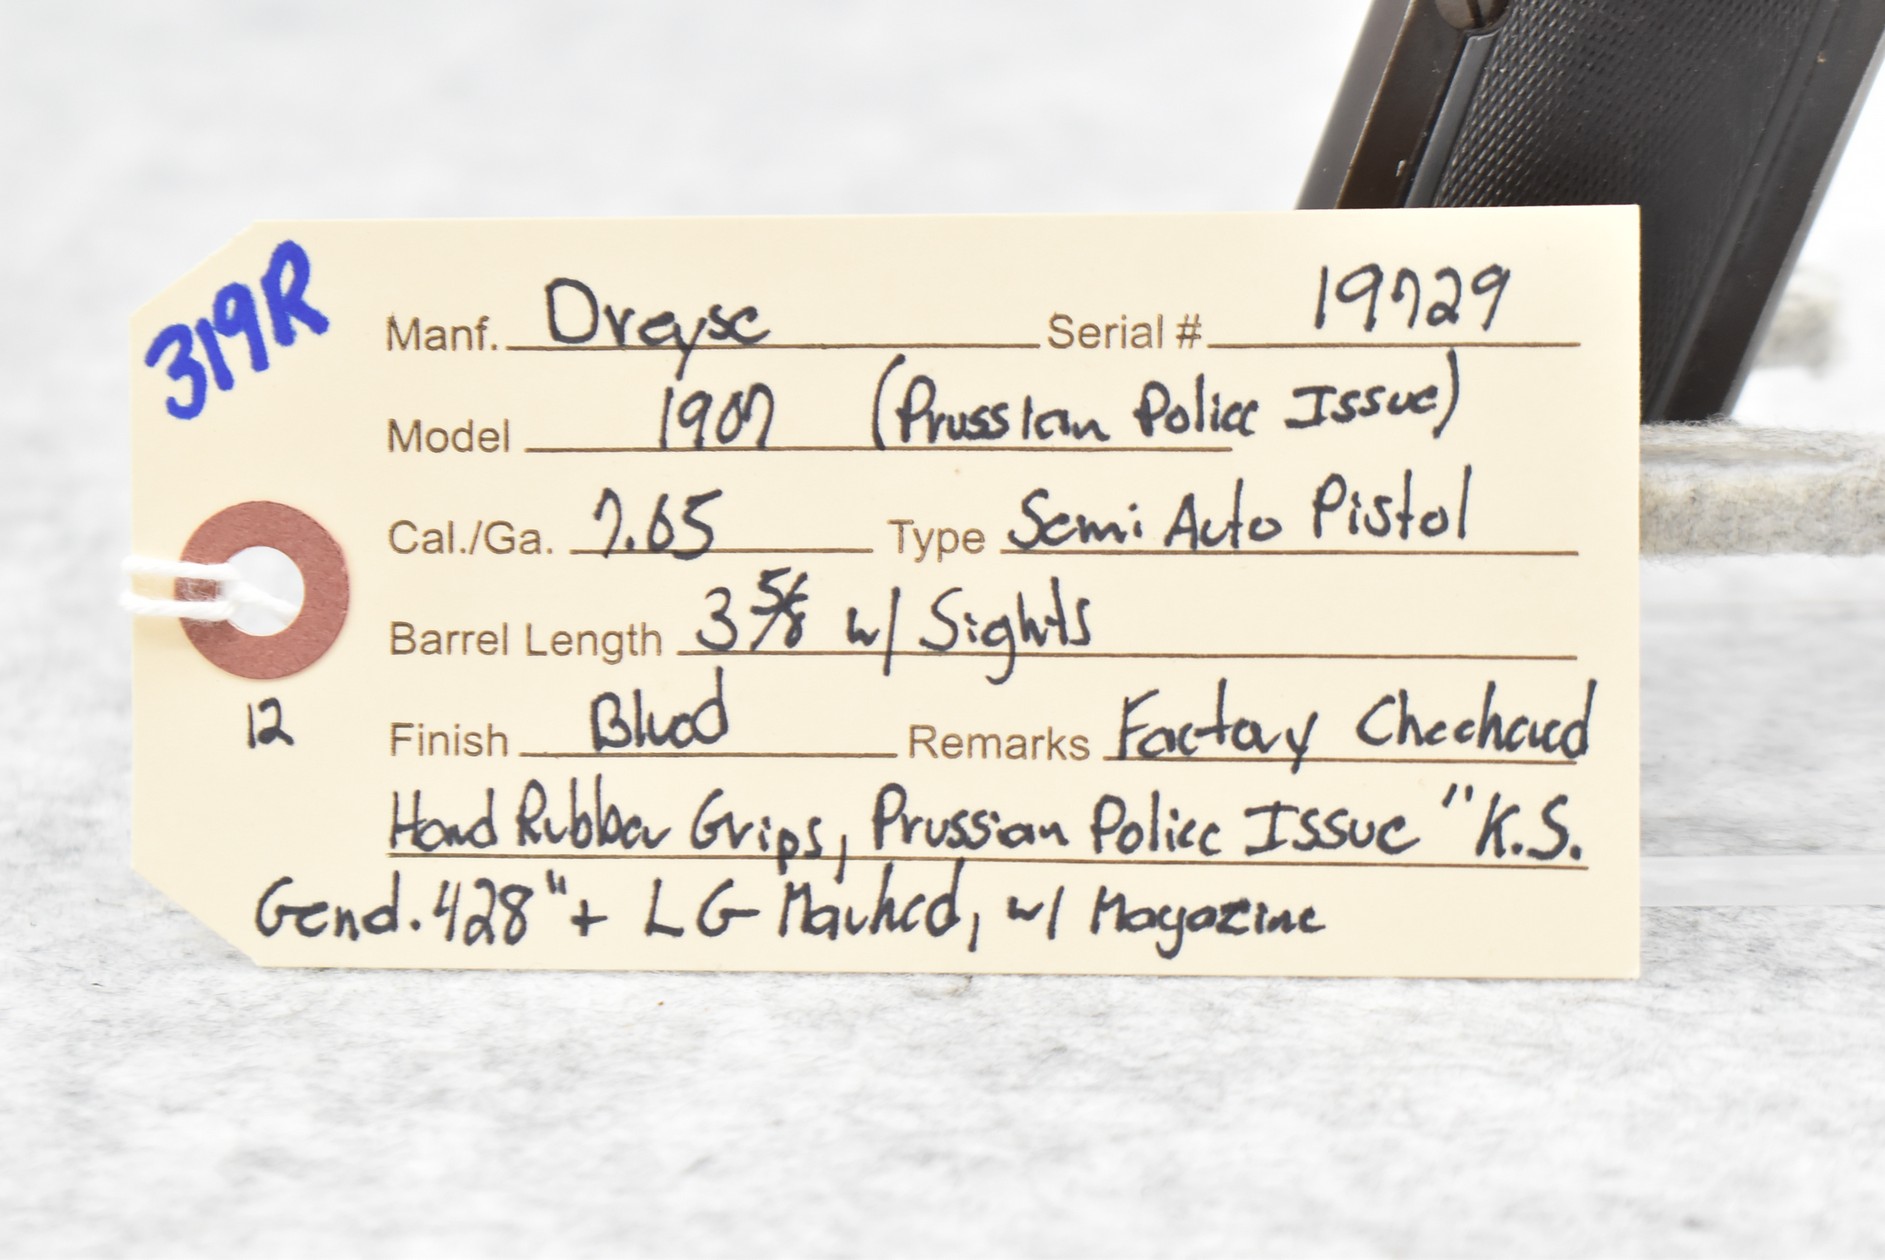 319R
Manf. Dreyse Serial # 19729
Model 1907 (Prussian Police Issue)
Cal./Ga. 7.65 Type Semi Auto Pistol
Barrel Length 3 5/8 w/ Sights
12
Finish Blued Remarks Factory Checkered
Hard Rubber Grips, Prussian Police Issue "K.S.
Gend. 428" + LG Marked, w/ Magazine